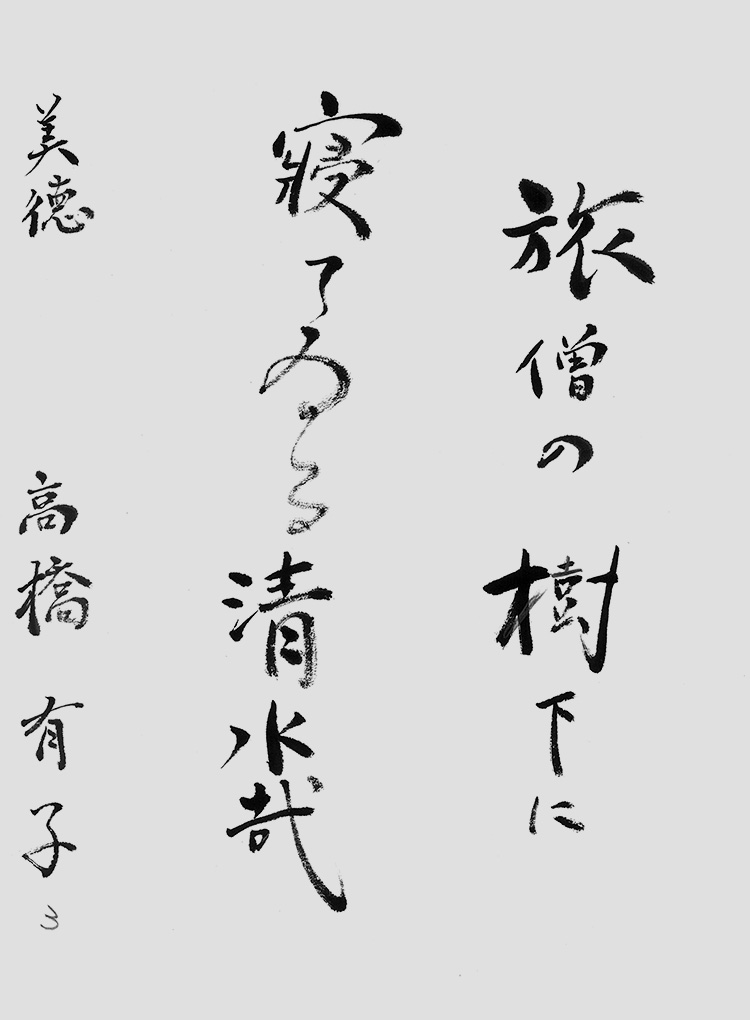 旅僧の樹下に
寝てゐる清水哉
美徳 高橋有子
3